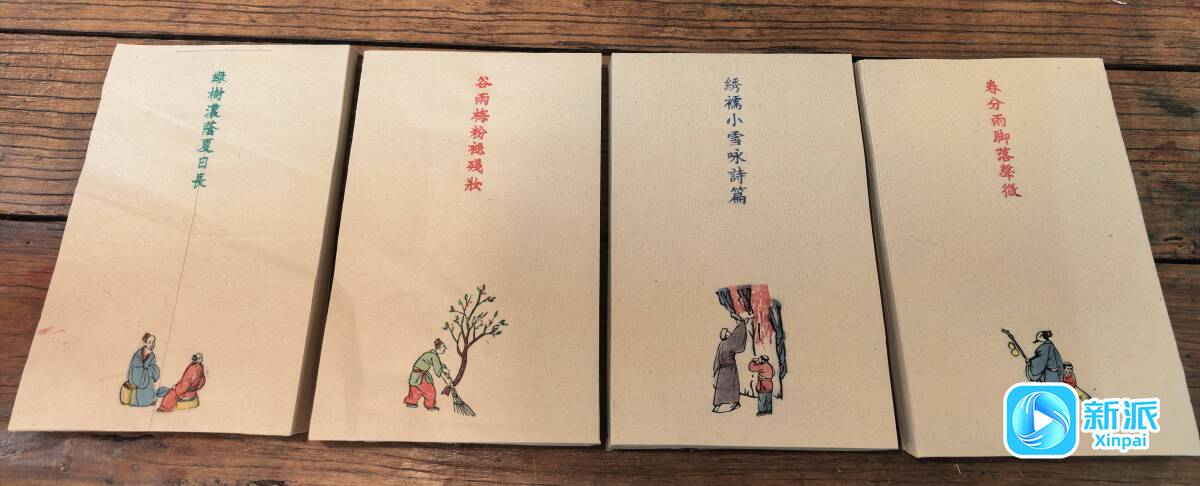 綠樹濃蔭夏日長
谷雨梅粉褪殘妝
綉襦小雪咏詩篇
春分雨脚落聲微
新派
Xinpai